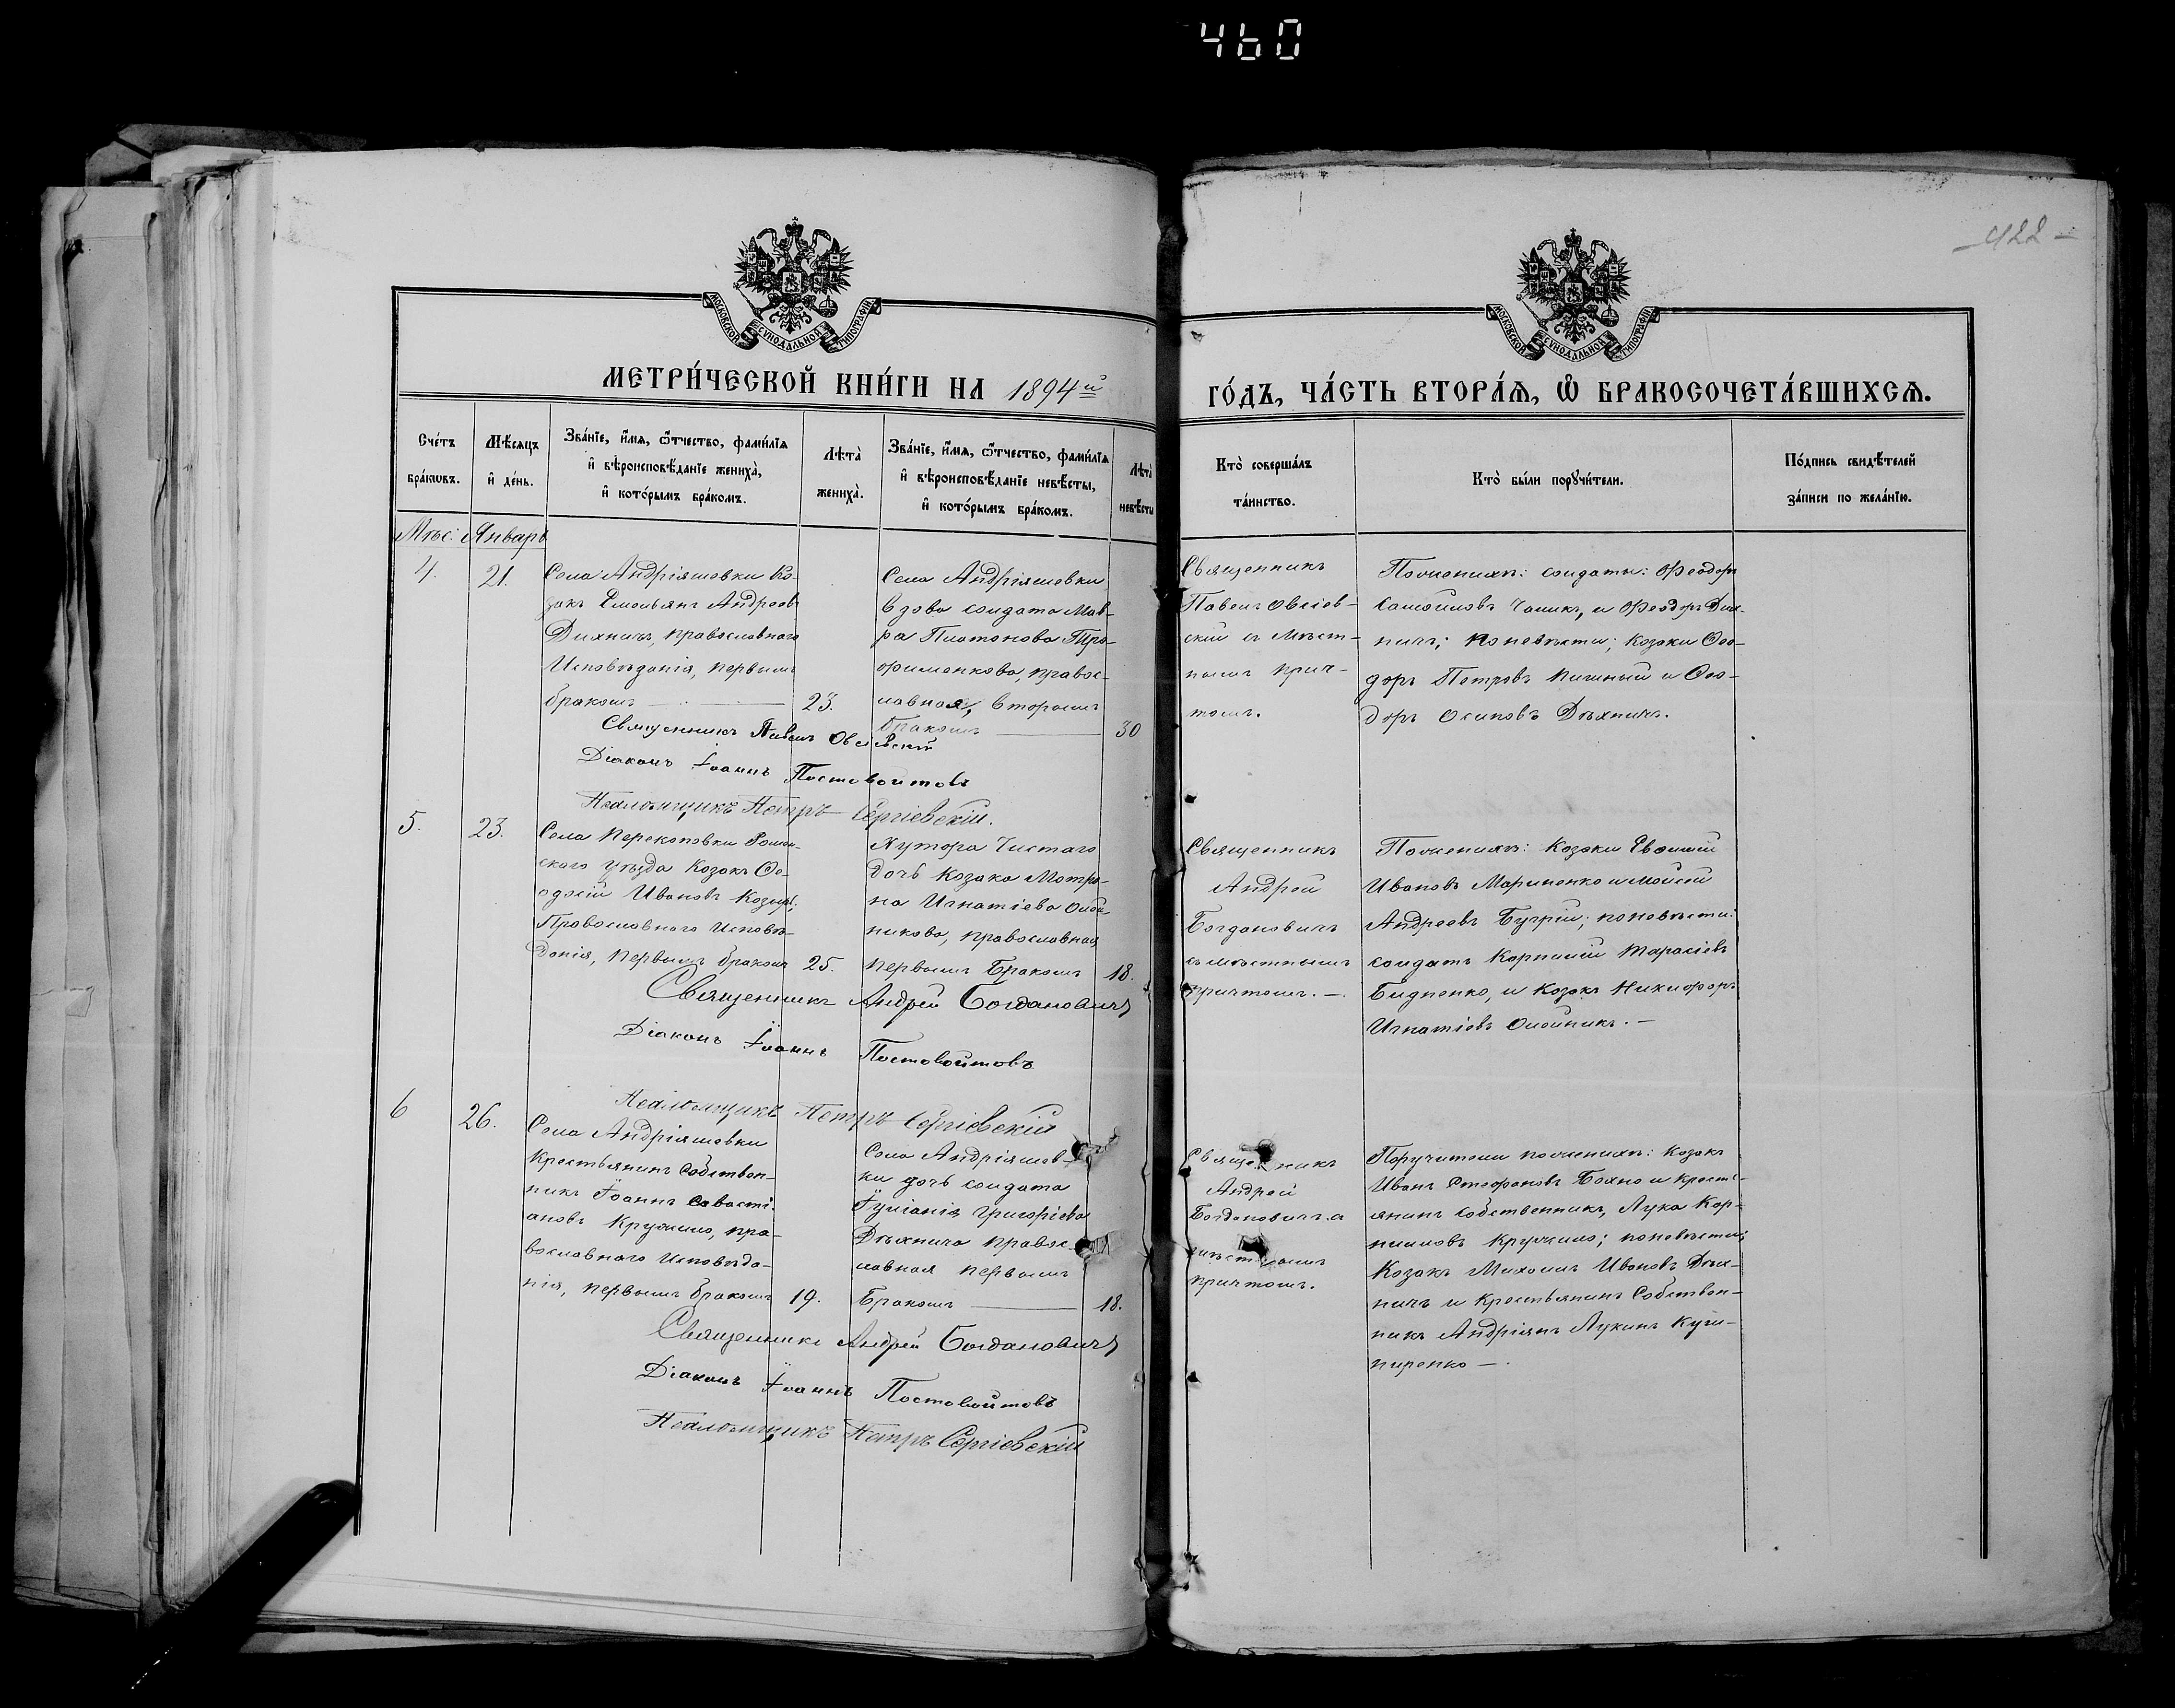 460
422
МОСКОВСКОЙ СѴНОДАЛЬНОЙ ТИПОГРАФІИ
МОСКОВСКОЙ СѴНОДАЛЬНОЙ ТИПОГРАФІИ
МЕТРИ́ЧЕСКОЙ КНИ́ГИ НА 1894й
ГО́ДЪ, ЧА́СТЬ ВТОРА́Ѧ, Ѽ БРАКОСОЧЕТА́ВШИХСѦ.
Сче́тъ
бра́кѡвъ.
Мѣ́сяцъ
и҆ де́нь.
Зва́нїе, и҆́мѧ, ѻ҆́тчество, фами́лїѧ
и҆ вѣроисповѣ́данїе жениха̀,
и҆ кото́рымъ бра́комъ.
Лѣта̀
жениха̀.
Зва́нїе, и҆́мѧ, ѻ҆́тчество, фами́лїѧ
и҆ вѣроисповѣ́данїе невѣ́сты,
и҆ кото́рымъ бра́комъ.
Лѣта̀
невѣ́сты
Кто̀ соверша́лъ
та́инство.
Кто̀ бы́ли порꙋчи́тели.
По́дпись свидѣ́телей
за́писи по жела́нїю.
Мѣс: Январь
4.
21.
Села Андріяшовки Ко-
закъ Емельянъ Андреевъ
Дихничъ, православнаго
Исповѣданія, первымъ
бракомъ
23.
Села Андріяшевки
вдова солдата Мав-
ра Платонова Тро-
фименкова, правос-
лавная, вторымъ
бракомъ
30
Священникъ
Павелъ Овсіев-
скій съ мѣст-
нымъ прич-
томъ.
Пожениху: солдаты: Феодоръ
Самойловъ Чапикъ, и Феодоръ Дих-
ничъ; поневѣсти; Козаки Фео-
доръ Петровъ Пишный и Фео-
доръ Осиповъ Дѣхничъ.
Священникъ Павелъ Овсіевскій
Діаконъ Іоаннъ Постовойтовъ
Псаломщикъ Петръ Сергіевскій.
5.
23.
Села Перекоповки Ромен-
скаго уѣзда Козакъ Фе-
одосій Ивановъ Козиръ;
Православнаго Исповѣ-
данія, первымъ бракомъ
25.
Хутора Чистаго
дочь Козака Матро-
на Игнатіева Олей-
никова, православная
первымъ бракомъ
18.
Священникъ
Андрей
Богдановичъ
съ мѣстнымъ
причтомъ.
Пожениху: Козаки Евфимій
Ивановъ Мариненко и Мойсей
Андреевъ Бугрій; поневѣсти:
солдатъ Корнилій Тарасіевъ
Бидненко, и Козакъ Никифоръ
Игнатіевъ Олейникъ.
Священникъ Андрей Богдановичъ
Діаконъ Іоаннъ Постовойтовъ
Псаломщикъ Петръ Сергіевскій
6
26.
Села Андріяшовки
Крестьянинъ Собствен-
никъ Іоаннъ Савасті-
ановъ Кружило, пра-
вославнаго Исповѣда-
нія, первымъ бракомъ
19.
Села Андріяшов-
ки дочь солдата
Іуліанія Григоріева
Дѣхнича правос-
лавная первымъ
бракомъ
18.
Священникъ
Андрей
Богдановичъ съ
мѣстнымъ
причтомъ.
Поручители пожениху: Козакъ
Иванъ Стефановъ Бохно и Кресть-
янинъ Собственникъ, Лука Кор-
ниловъ Кружило; поневѣсти;
Козакъ Михаилъ Ивановъ Дѣх-
ничъ и Крестьянинъ Собствен-
никъ Андріянъ Лукинъ Куш-
ниренко
Священникъ Андрей Богдановичъ
Діаконъ Іоаннъ Постовойтовъ
Псаломщикъ Петръ Сергіевскій